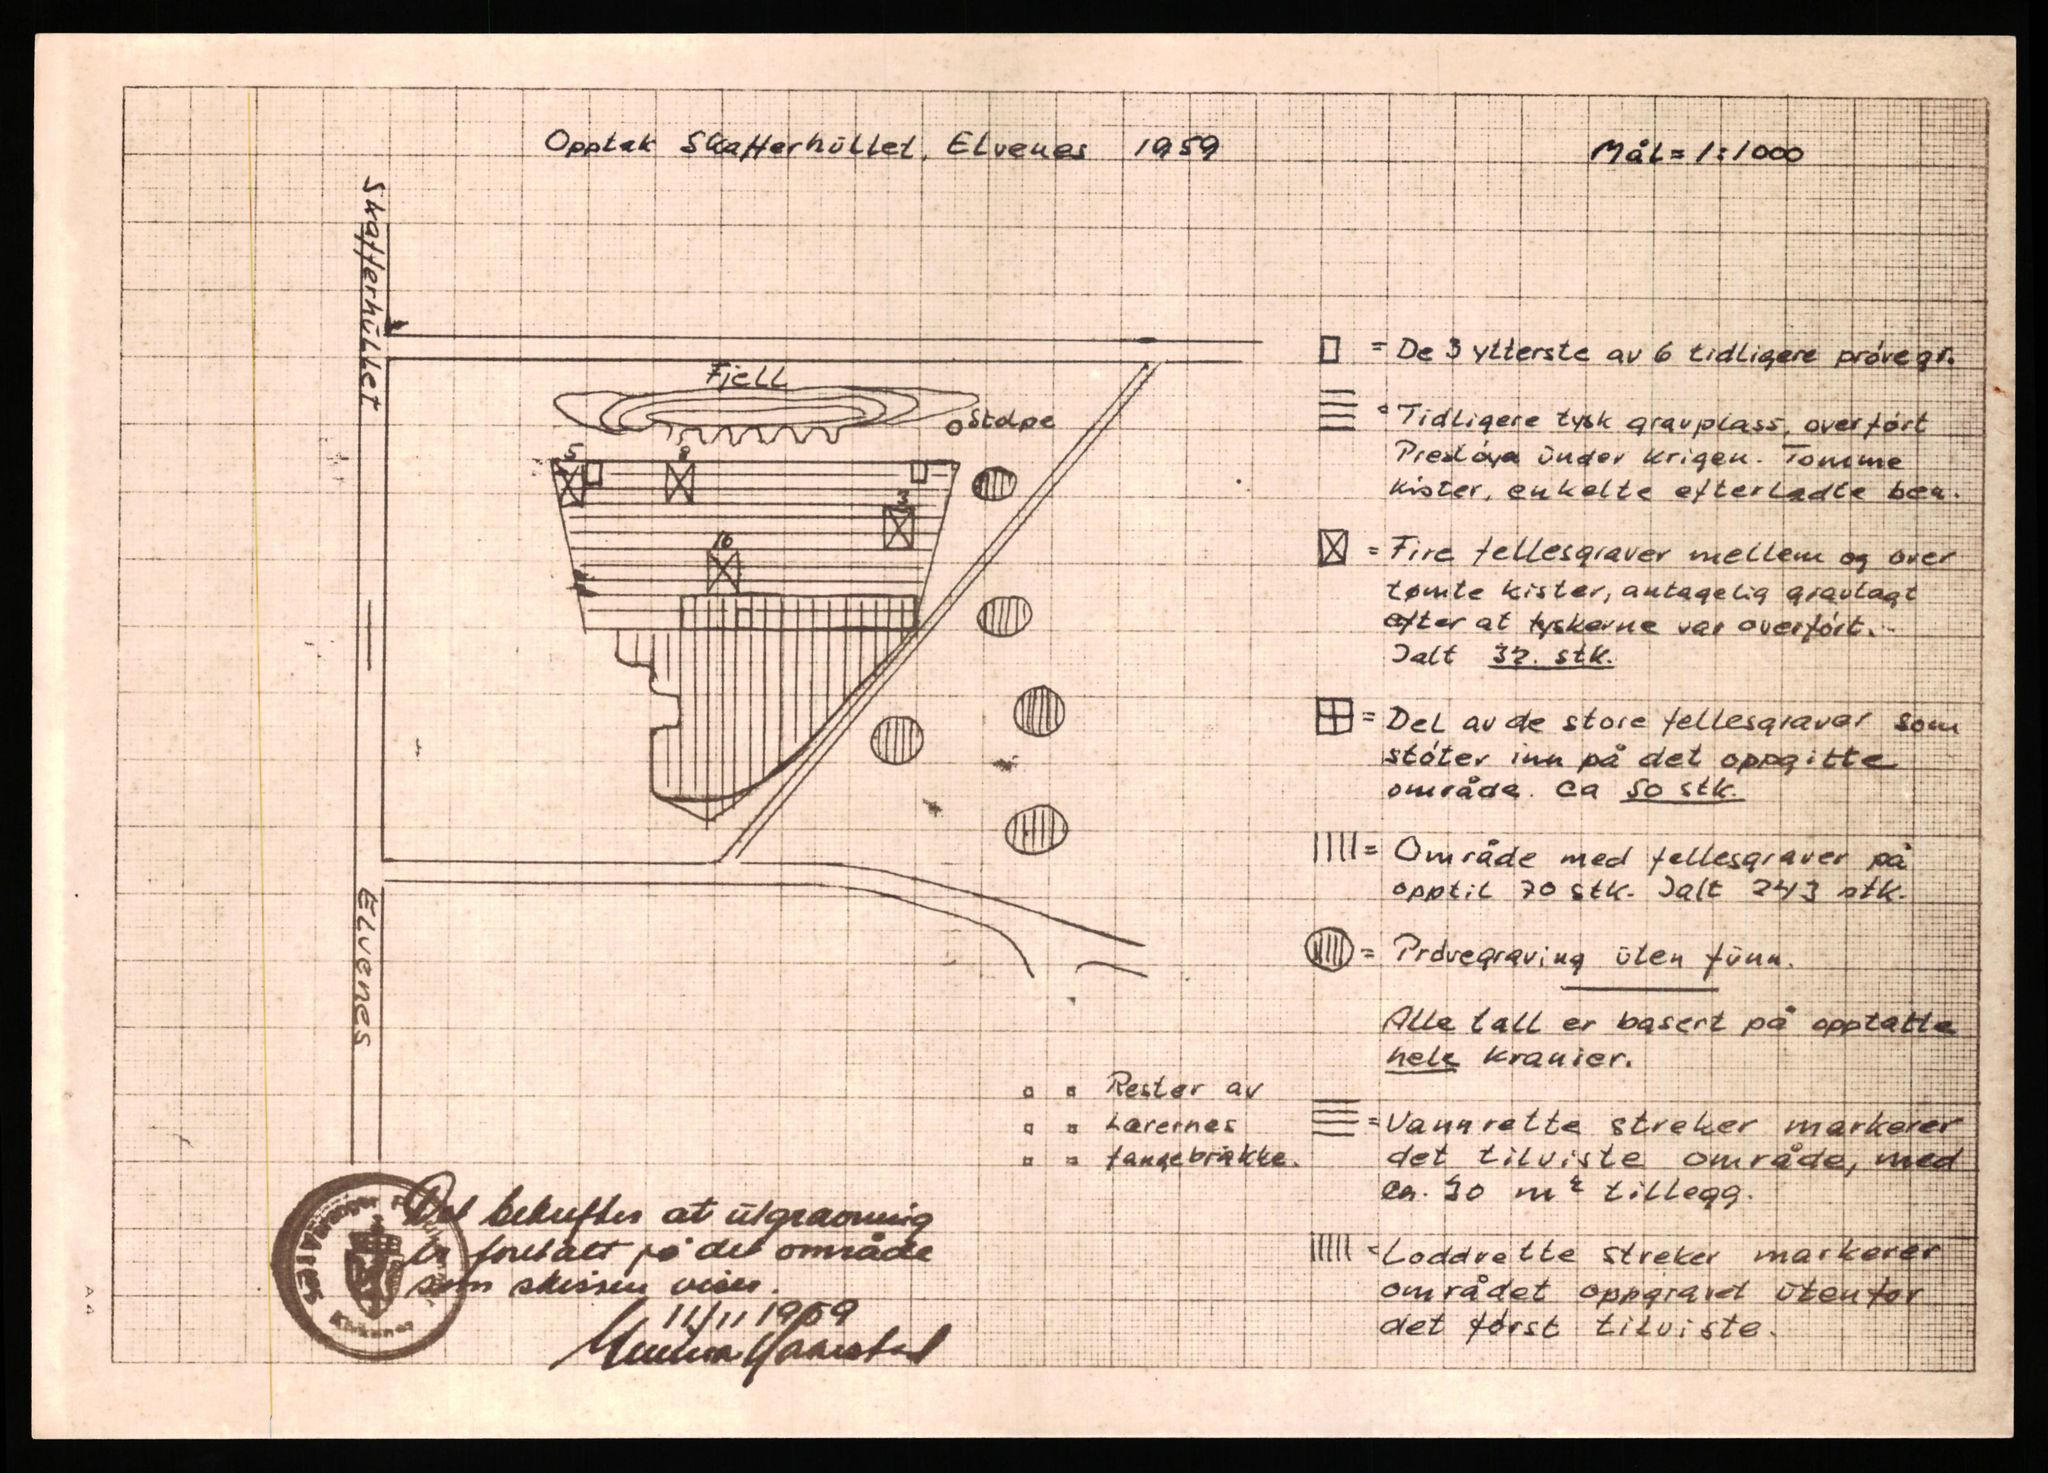 Opptak Skafferhüllet, Elvenes 1959
Mål = 1:1000
Skafferhüllet
Fjell
Stolpe
5
8
3
16
Elvenes
= De 3 ytterste av 6 tidligere prøvegr.
= Tidligere tysk gravplass, overført
Prestøya ünder krigen. Tomme
kister, enkelte efterladte ben.
= Fire fellesgraver mellem og over
tømte kister, antagelig gravlagt
efter at tyskerne var overført.
Ialt 32. stk.
= Del av de store fellesgraver som
støter inn på det oppgitte
område. Ca 50 stk.
= Område med fellesgraver på
opptil 70 stk. Ialt 243 stk.
= Prøvegraving üten fünn.
Alle tall er basert på opptatte
hele kranier.
= Vannrette streker markerer
det tilviste område, med
ca. 30 m² tillegg.
= Loddrette streker markerer
området oppgravd ütenfor
det først tilviste.
Rester av
Larernes
fangebrakke.
Det bekreftes at ütgravning
er foretatt på det område
som skissen viser.
11/11 1959
Kirkenes
A 4